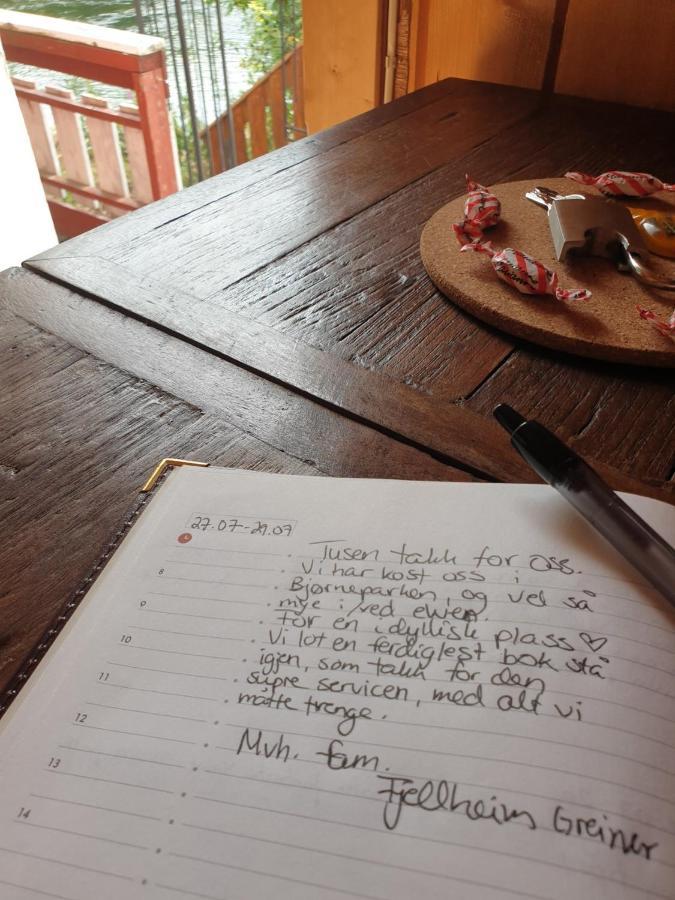 27.07-29.07
Tusen takk for oss.
Vi har kost oss i
Bjørneparken, og vel så
mye i/ved elven.
For en idyllisk plass ♡
Vi lot en ferdiglest bok stå
igjen, som takk for den
supre servicen, med alt vi
måtte trenge.
Mvh. fam.
Fjellheim Greiner
8
9
10
11
12
13
14